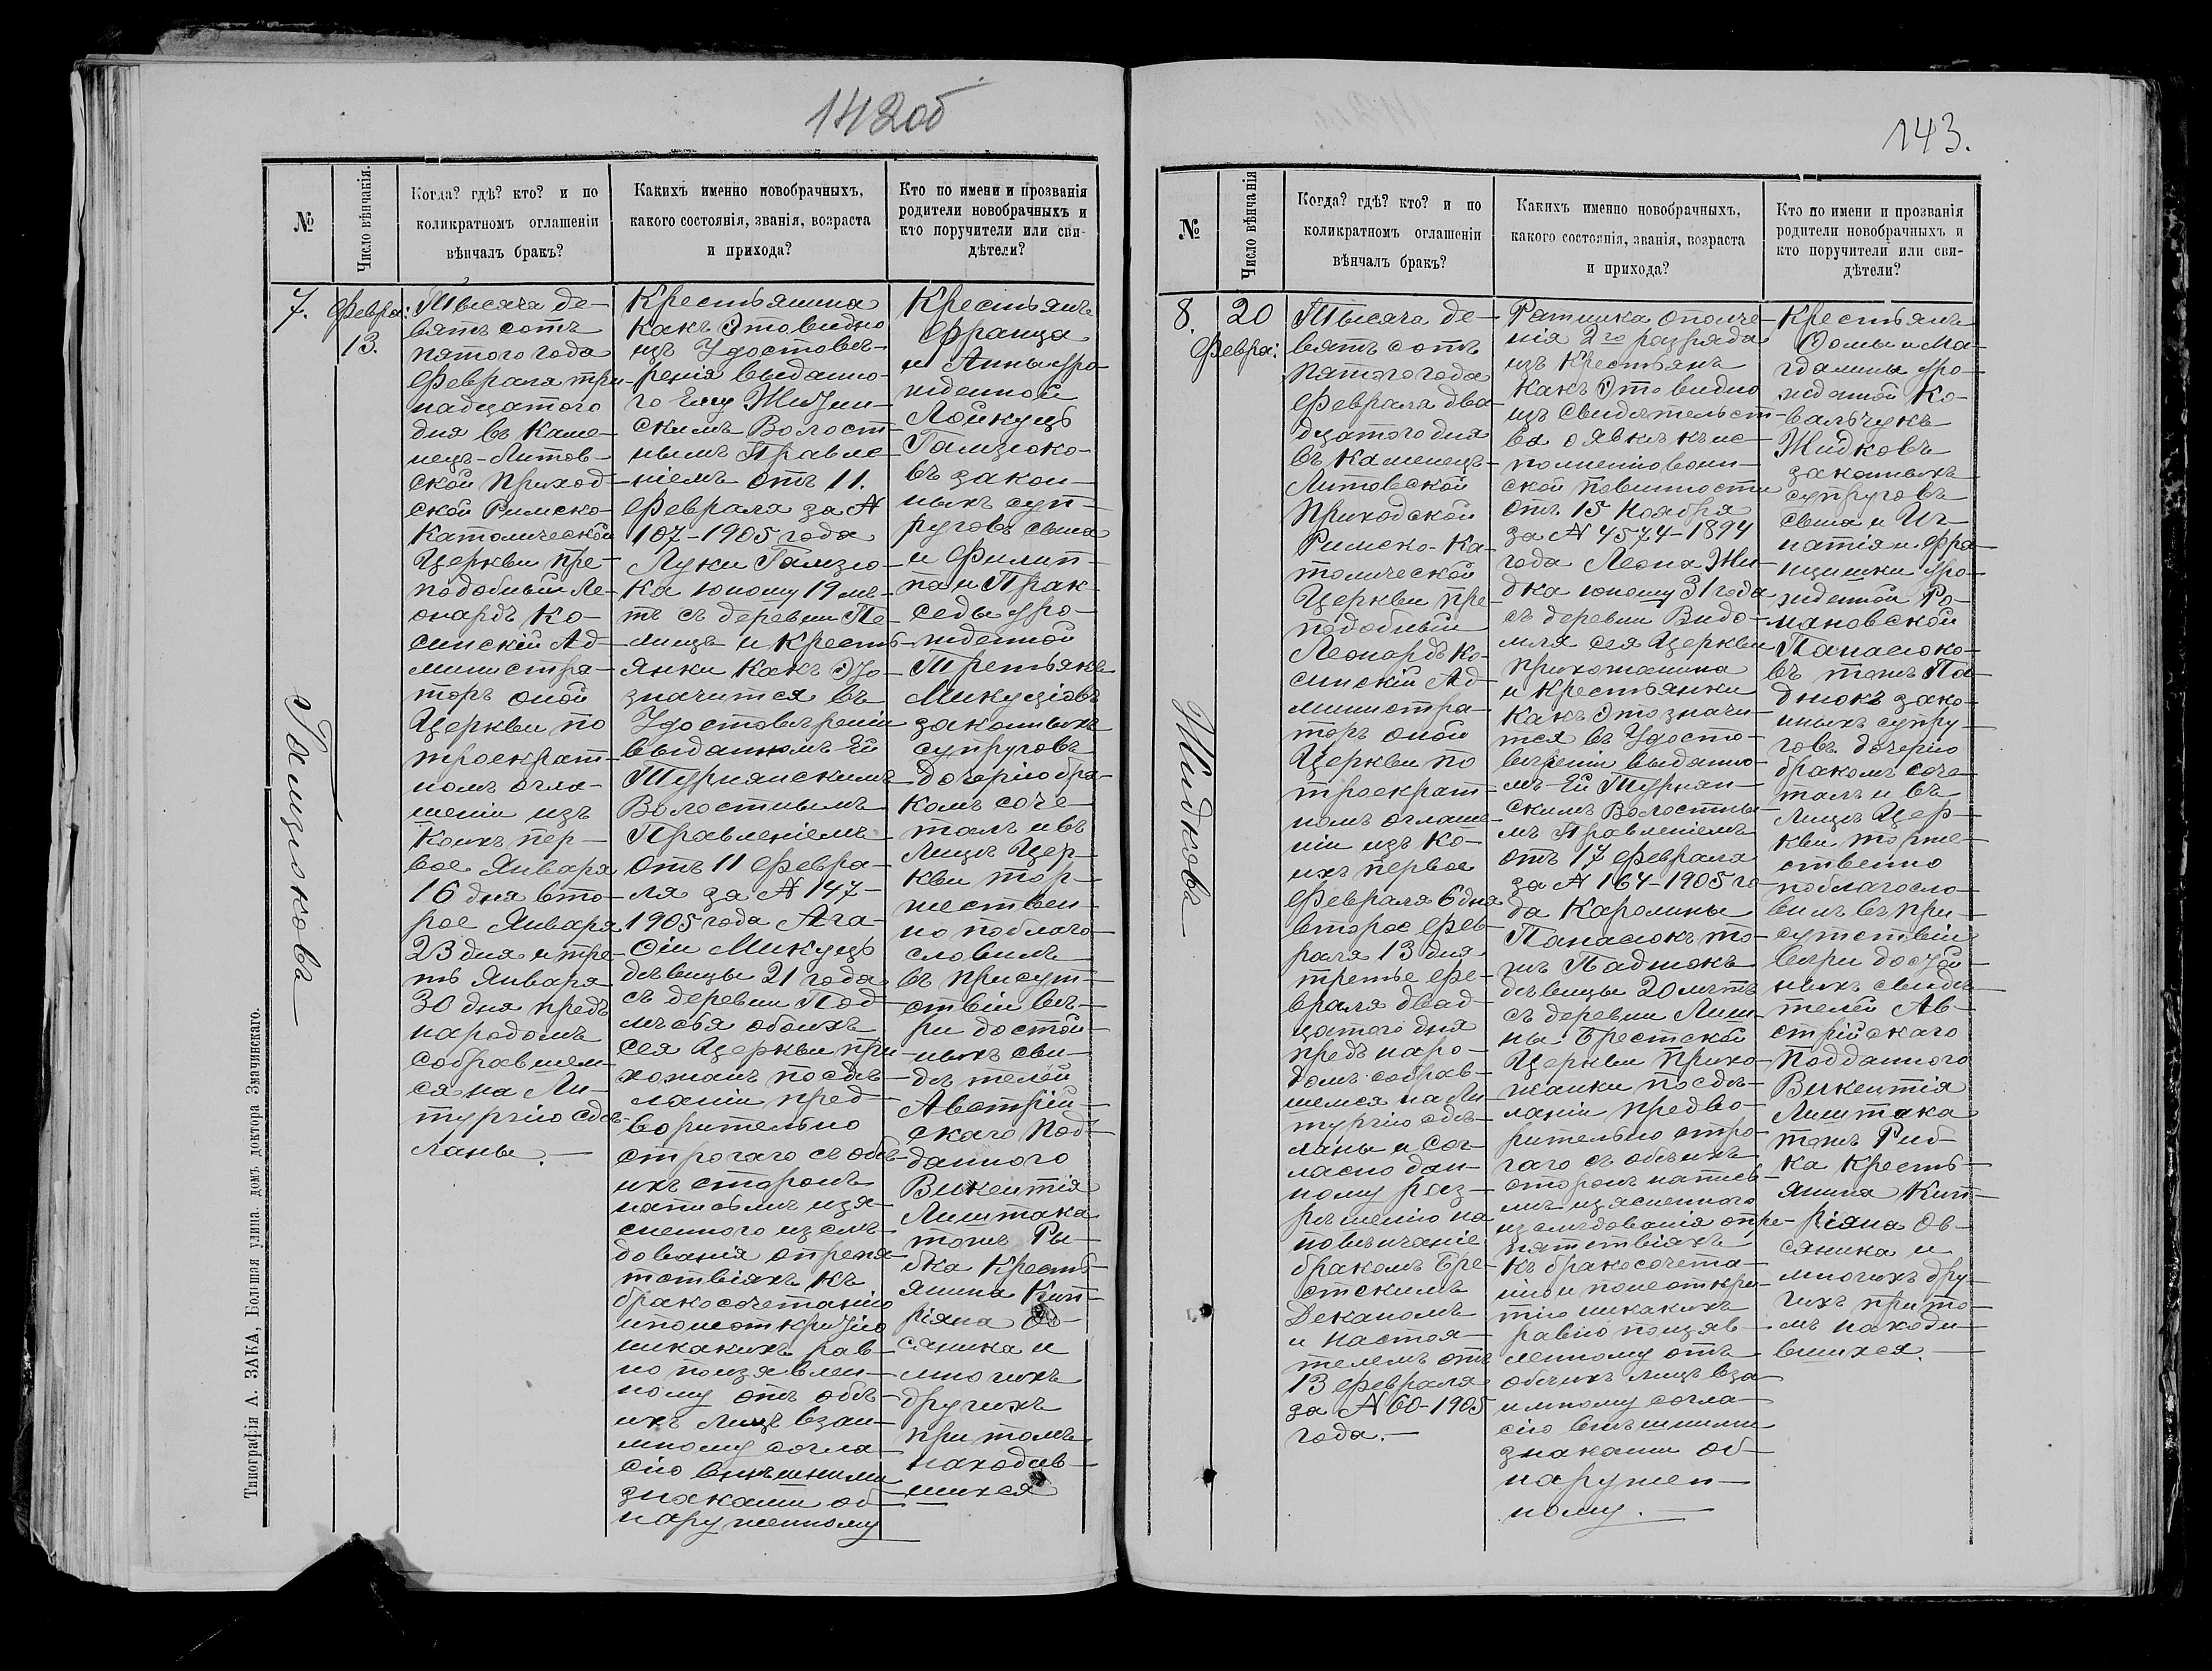 142об
№
Число вѣнчанія.
Когда? гдѣ? кто? и по
коликратномъ оглашеніи
вѣнчалъ бракъ?
Какихъ именно новобрачныхъ,
какого состоянія, званія, возраста
и прихода?
Кто по имени и прозванія
родители новобрачныхъ и
кто поручители или сви-
дѣтели?
7.
Февра:
13.
Гамзюковъ
Тысяча де-
вятьсотъ
пятого года
Февраля три-
надцатого
дня въ Каме-
нецъ-Литов-
ской Приход-
ской Римско-
Католической
Церкви пре-
подобный Ле-
онардъ Ко-
синскій Ад-
министра-
торъ оной
Церкви по
троекрат-
номъ огла-
шеніи изъ
коихъ пер-
вое Января
16 дня вто-
рое Января
23 дня и тре-
тѣ Января
30 дня предъ
народомъ
собравшем-
ся на Ли-
тургію сдѣ-
ланы.—
Крестьянина
какъ Это видно
изъ Удостовѣ-
ренія выданно-
го Ему
скимъ Волост-
нымъ Правле-
ніемъ отъ 11.
Февраля за №
107-1905 года
Луки Гамзю-
ка юному 19 лѣ-
тъ съ деревни Пе-
лищъ и Кресть-
янки какъ Это
значится въ
Удостовѣреніи
выданномъ Ей
Турнянскимъ
Волостнымъ
Правленіемъ
отъ 11 Февра-
ля за № 147-
1905 года Ага-
ѳіи Микуцъ
дѣвицы 21 года
съ деревни Под-
лѣсья обоихъ
сея Церкви при-
хожанъ посдѣ-
ланіи пред-
ворительно
строгаго съ обѣ-
ихъ сторонъ
натисьмѣ изя-
сненного изслѣ-
дованія опрепя-
тствіяхъ къ
бракосочетанію
инонеоткрытію
никакихъ рав-
но поизявлен-
ному отъ обѣ-
ихъ лицъ взаи-
мному согла-
сію внѣшними
знаками об-
наруженному
Крестьянъ
Франца
и Анны уро-
жденной
Лойкуцъ
Гамзюко-
въ закон-
ныхъ суп-
руговъ сына
и Филип-
па и Прак-
седы уро-
жденной
Третьякъ
Микуціовъ
законныхъ
супруговъ
дочерію бра-
комъ соче-
талъ и въ
Лицѣ Цер-
кви тор-
жествен-
но поблаго-
словилъ
въ присут-
ствіи вѣ-
ри достой-
ныхъ сви-
дѣтелей
Австрій-
скаго Под-
данного
Викентія
Лиштака
тожъ Ры-
бка Кресть-
янина Кип-
ріяна Ов-
сяника и
многихъ
другихъ
при томъ
находив-
шихся
Типографія А. ЗАКА, Большая улица. домъ доктора Змачинскаго.
143.
№
Число вѣнчанія
Когда? гдѣ? кто? и по
коликратномъ оглашеніи
вѣнчалъ бракъ?
Какихъ именно новобрачныхъ,
какого состоянія, званія, возраста
и прихода?
Кто по имени и прозванія
родители новобрачныхъ и
кто поручители или сви-
дѣтели?
8.
20
Февра:
Жидковъ
Тысяча де-
вятьсотъ
Пятого года
Февраля два-
дцатого дня
въ Каменецъ-
Литовской
Приходской
Римско-Ка-
толической
Церкви пре-
подобный
Леонардъ Ко-
синскій Ад-
министра-
торъ оной
Церкви по
троекрат-
номъ оглаше-
ніи изъ ко-
ихъ первое
Февраля 6 дня
второе Фев-
раля 13 дня
третье Фе-
враля двад-
цатого дня
предъ наро-
домъ собрав-
шемся на Ли-
тургію сдѣ-
ланы и сог-
ласно дан-
ному раз-
рѣшенію на
повѣнчаніе
бракомъ Бре-
стскимъ
Деканомъ
и Настоя-
телемъ отъ
13 Февраля
за № 60-1905
года.—
Ратника ополче-
нія 2го разряда
изъ Крестьянъ
какъ Это видно
изъ свидѣтельст-
ва о явкѣ къ ис-
полненію воин-
ской повинности
отъ 15 Ноября
за № 4574-1894
года Леона Жи-
дка юному 31 года
съ деревни Видо-
мля сея Церкви
прихожанина
и Крестьянки
какъ Это значи-
тся въ Удосто-
вѣреніи выданно-
мъ Ей Турнян-
скимъ Волостны-
мъ Правленіемъ
отъ 17 Февраля
за № 164-1905 го-
да Каролины
Панасюкъ то-
жъ Паднюкъ
дѣвицы 20 лѣтъ
съ деревни Лиш-
ны Брестской
Церкви Прихо-
жанки посдѣ-
ланіи предво-
рительно стро-
гаго съ обѣихъ
сторонъ натись-
мѣ изясненного
изслѣдованія опре-
пятствіяхъ
къ бракосочета-
нію и понеоткры-
тію никакихъ
равно поизяв-
ленному отъ
обѣихъ лицъ вза-
имному согла-
сію внѣшними
знаками об-
наружен-
ному.—
Крестьянъ
Ѳомы и Ма-
гдалины уро-
жденной Ко-
вальчукъ
Жидковъ
законныхъ
супруговъ
сына и Иг-
натія и Фра-
нцишки уро-
жденной Ро-
мановской
Панасюко-
въ тожъ Па-
днюкъ зако-
нныхъ супру-
говъ дочерію
бракомъ соче-
талъ и въ
Лицѣ Цер-
кви торже-
ственно
поблагосло-
вилъ въ при-
сутствіи
вѣри достой-
ныхъ свидѣ-
телей Ав-
стрійскаго
Подданного
Викентія
Лиштака
тожъ Рыб-
ка Кресть-
янина Кип-
ріяна Ов-
сяника и
многихъ дру-
гихъ при то-
мъ находи-
вшихся.—